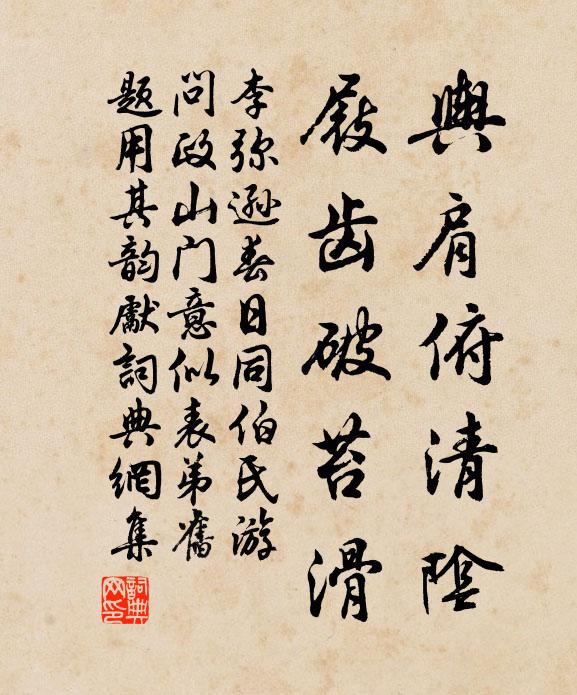 輿肩俯清陰
屐齒破苔滑
李弥遜春日同伯氏游
問政山门意似表弟舊
題用其韵獻詞典網集
詞典网印